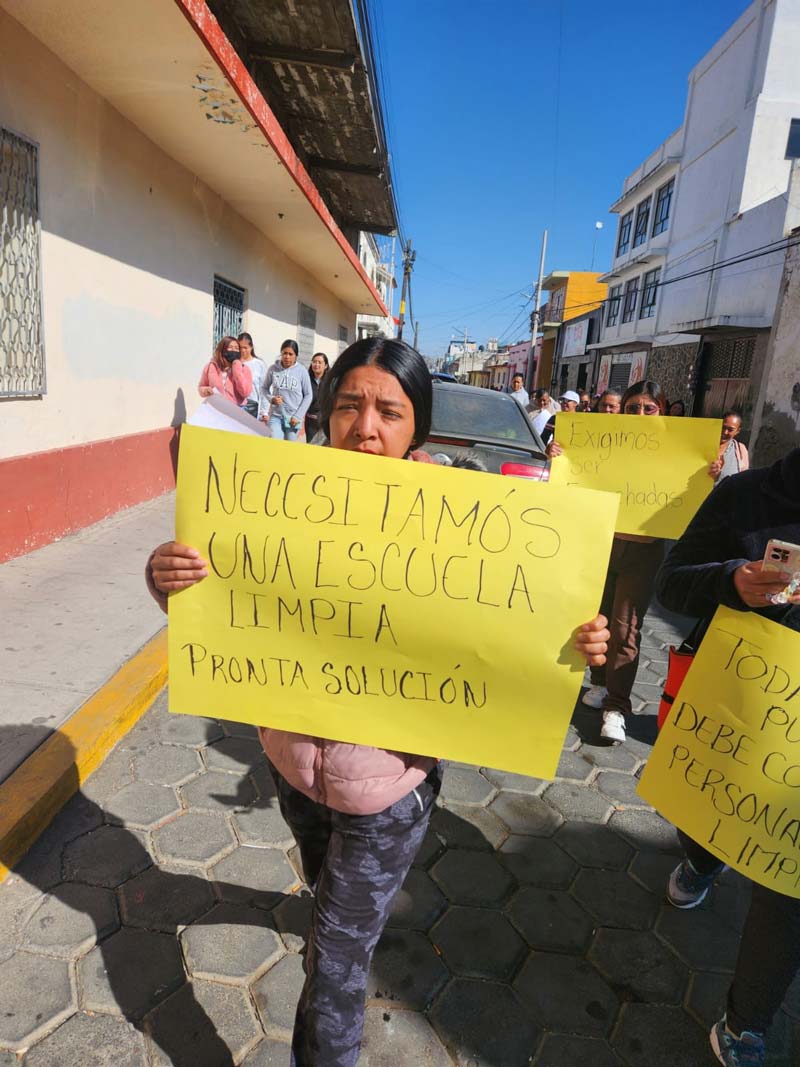 NECESITAMÓS
UNA ESCUELA
LIMPIA
PRONTA SOLUCIÓN
Exigimos
Ser
TODA
PU
DEBE CO
PERSONA
LIMP
GAP